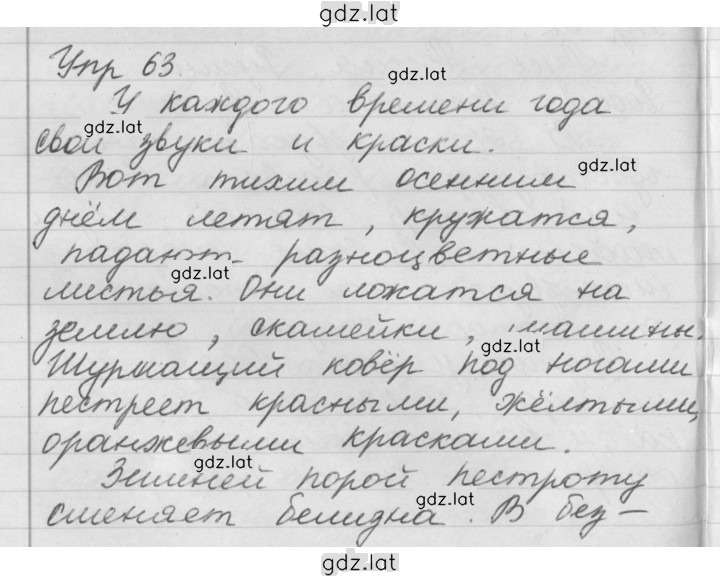 gdz.lat
Упр 63.
gdz.lat
У каждого времени года
gdz.lat
свои звуки и краски.
gdz.lat
Вот тихим осенним
днём летят, кружатся,
падают разноцветные
gdz.lat
листья. Они ложатся на
землю, скамейки, машины.
gdz.lat
Шуршащий ковёр под ногами
пестреет красными, жёлтыми,
оранжевыми красками.
gdz.lat
Зимней порой пестроту
gdz.lat
сменяет белизна. В без-
gdz.lat